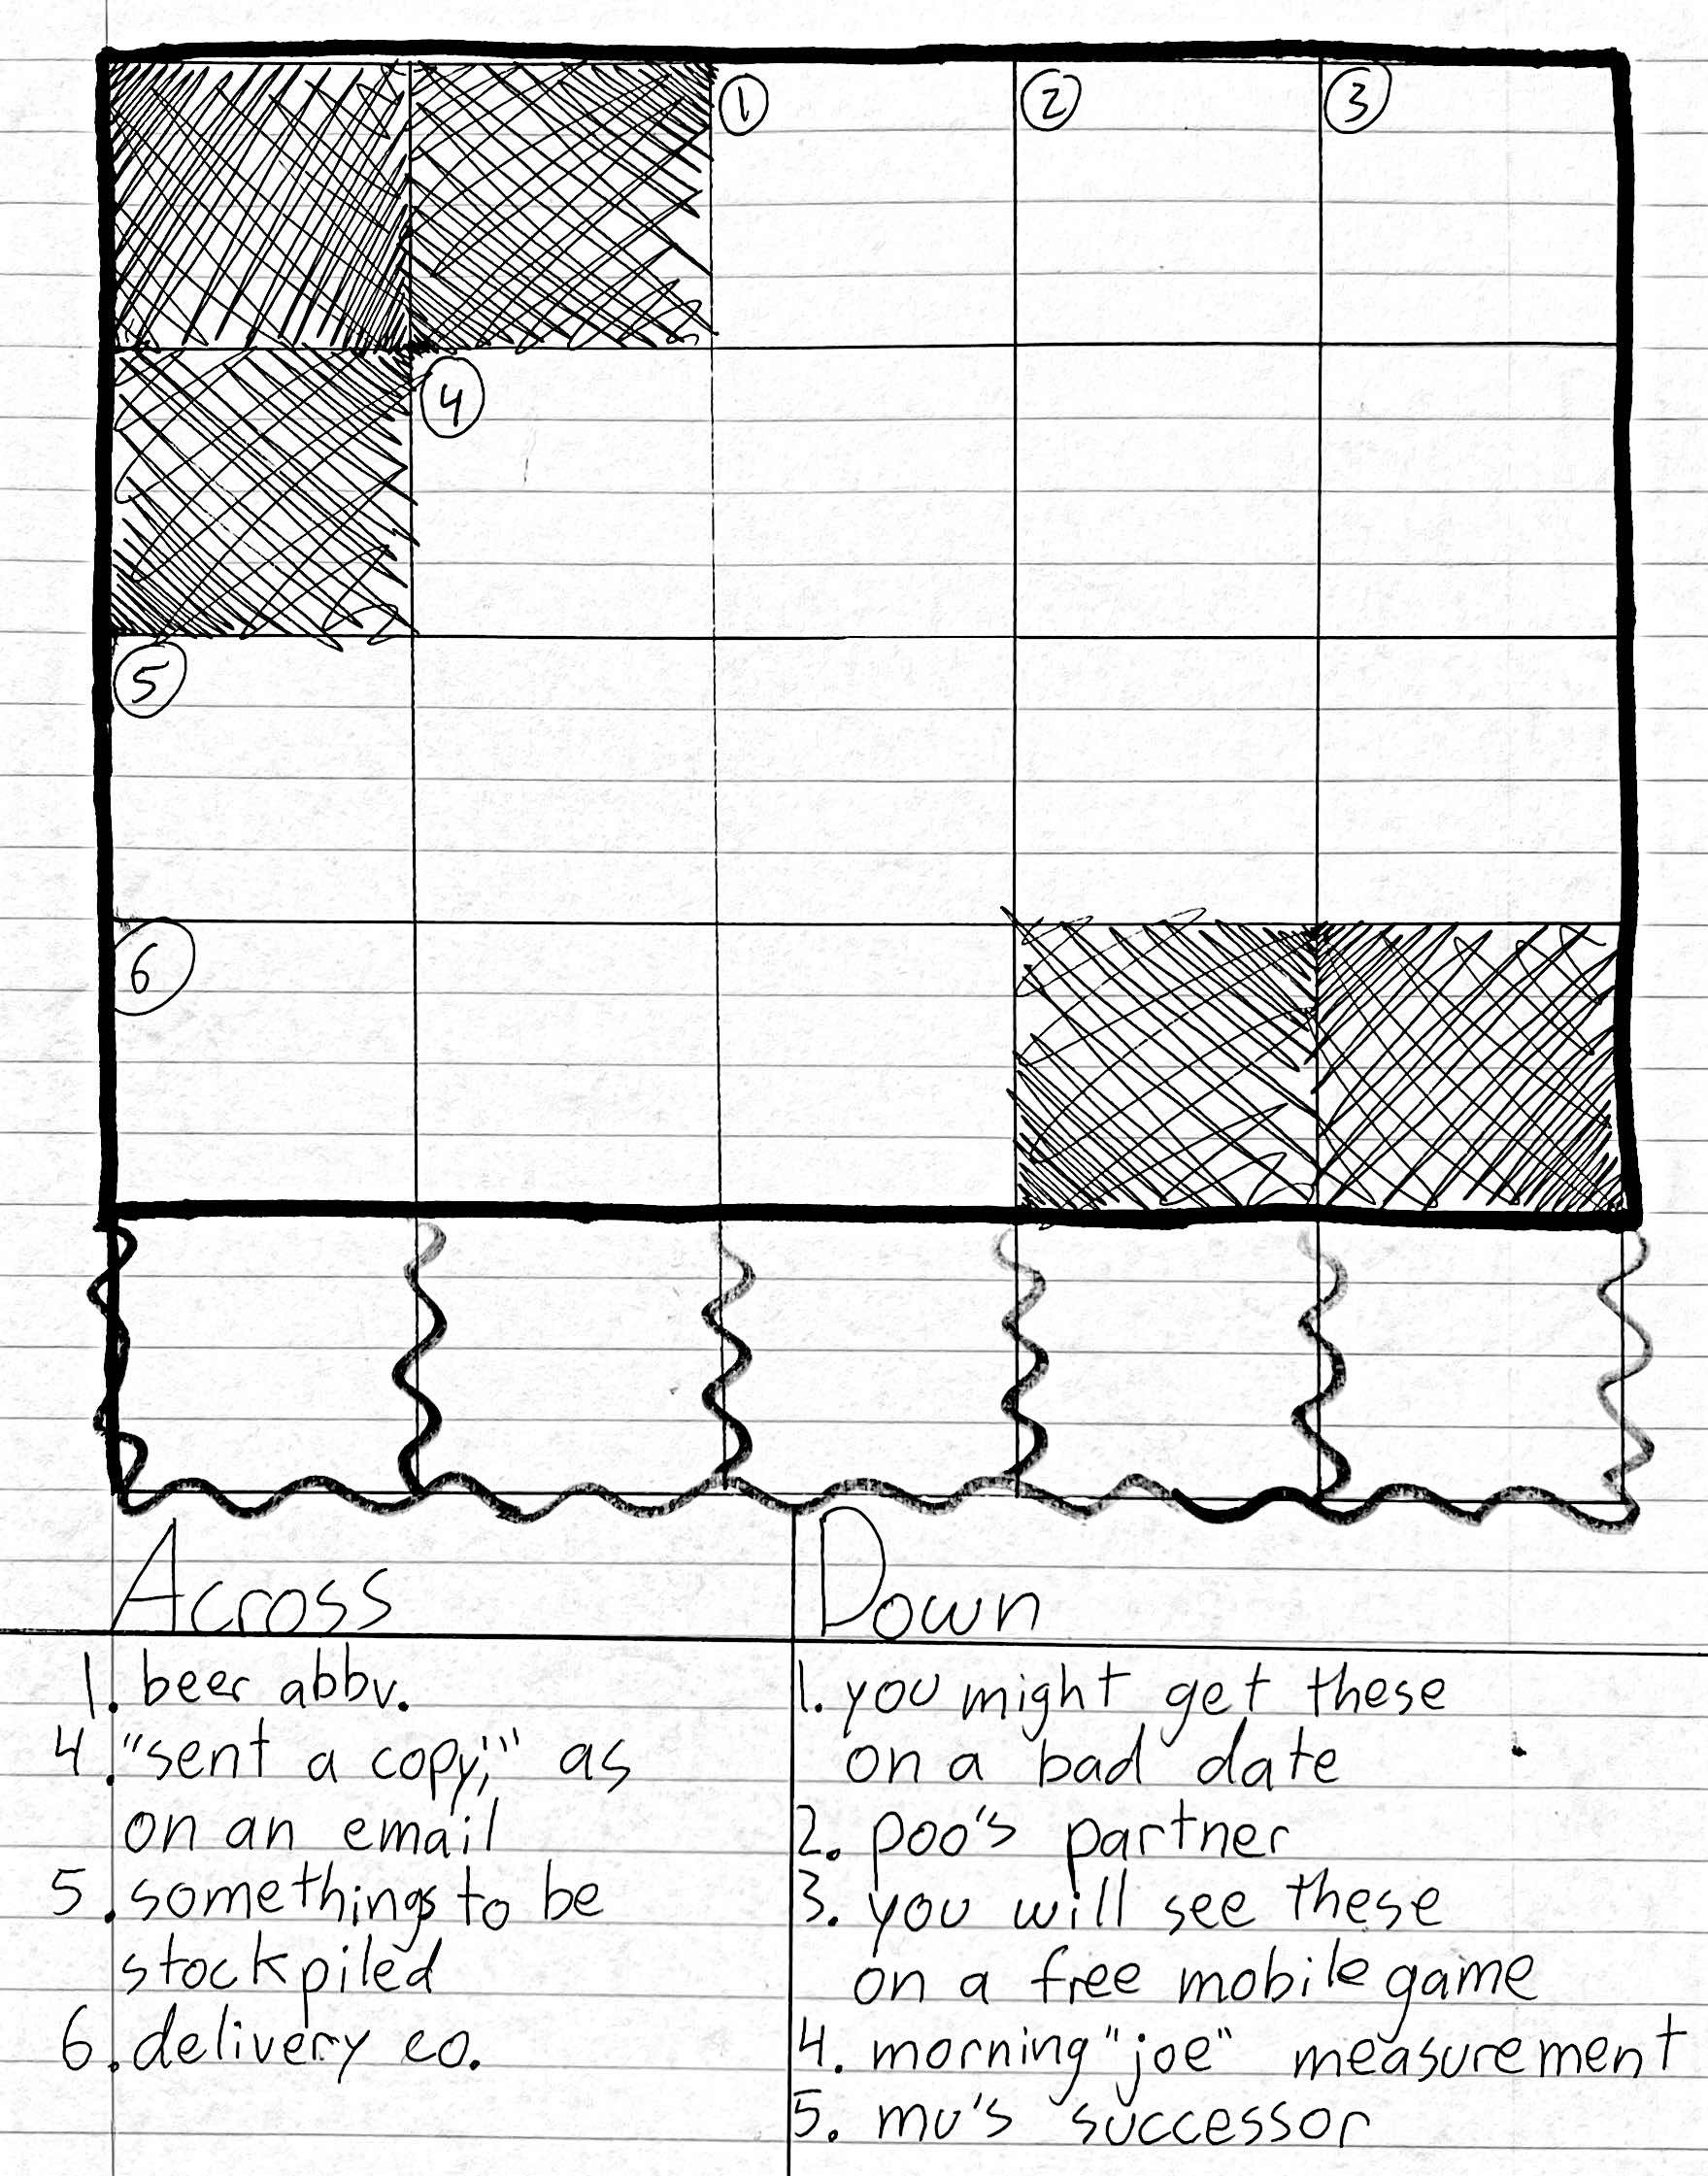 1
2
3
4
5
6
Across
1. beer abbv.
4. "sent a copy," as
on an email
5. somethings to be
stockpiled
6. delivery co.
Down
1. you might get these
on a bad date
2. poo's partner
3. you will see these
on a free mobile game
4. morning "joe" measurement
5. mu's successor